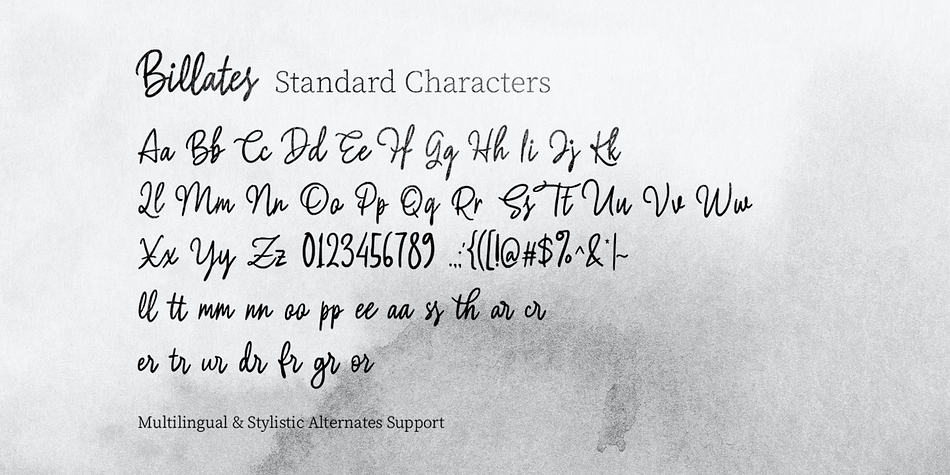 Billates Standard Characters
Aa Bb Cc Dd Ee Ff Gg Hh Ii Jj Kk
Ll Mm Nn Oo Pp Qq Rr Ss Tt Uu Vv Ww
Xx Yy Zz 0123456789 .,:;'{([!@#$%^&*|~
ll tt mm nn oo pp ee aa ss th ar cr
er tr ur dr fr gr or
Multilingual & Stylistic Alternates Support